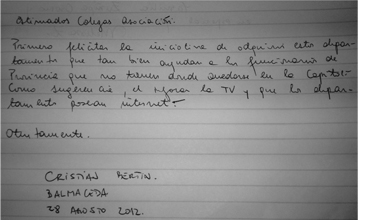 Estimados Colegas Asociación.
Primero felicitar la iniciativa de adquirir estos depar-
tamentos que tan bien ayudan a los funcionarios de
Provincia que no tienen donde quedarse en la Capital.-
Como sugerencia, el mejorar la TV y que los depar-
tamentos posean internet.-
Atentamente.
CRISTIAN BERTIN.
BALMACEDA
28 AGOSTO 2012.